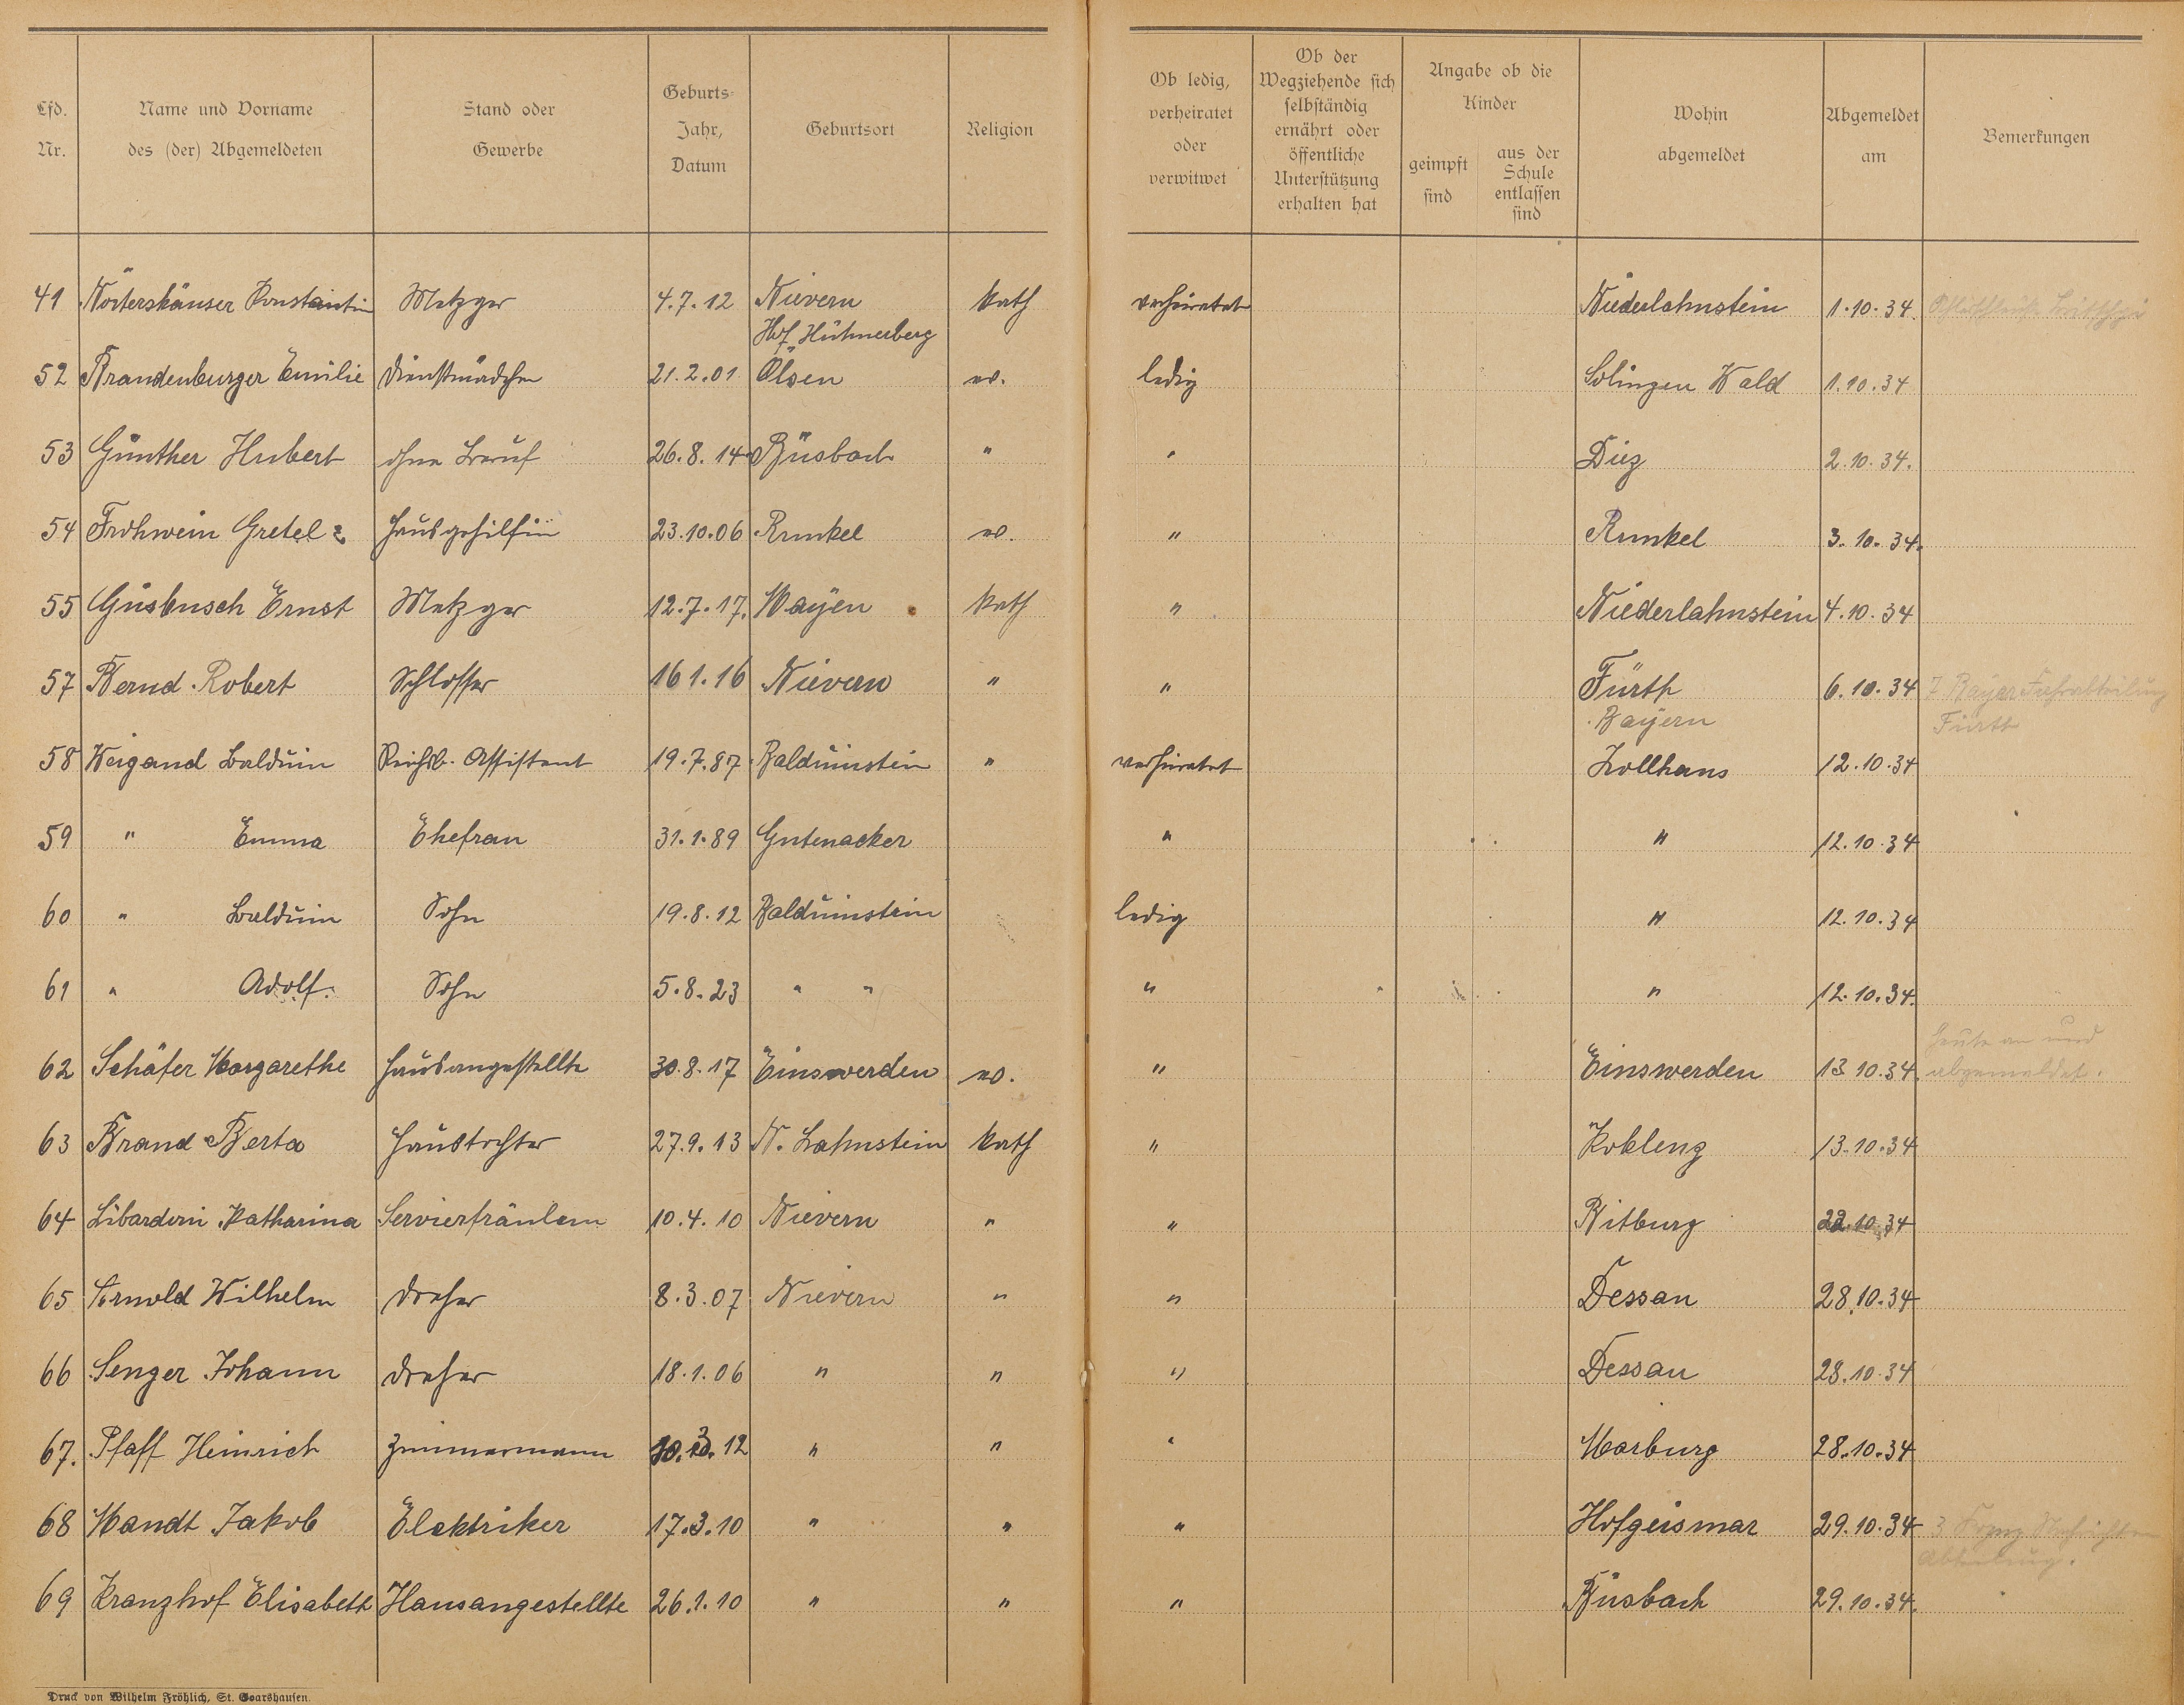 Lfd. Nr.
Name und Vorname des (der) Abgemeldeten
Stand oder Gewerbe
Geburts-Jahr, Datum
Geburtsort
Religion
Ob ledig, verheiratet oder verwitwet
Ob der Wegziehende sich selbständig ernährt oder öffentliche Unterstützung erhalten hat
Angabe ob die Kinder
geimpft sind
aus der Schule entlassen sind
Wohin abgemeldet
Abgemeldet am
Bemerkungen
41 Nörtershäuser Konstantin Metzger 4.7.12 Nievern kath verheiratet Niederlahnstein 1.10.34.
Hof Hühnerberg
52 Brandenburger Emilie Dienstmädchen 21.2.01 Ölsen ev. ledig Solingen Wald 1.10.34
53 Günther Hubert ohne Beruf 26.8.14 Büsbach " " Diez 2.10.34.
54 Frohwein Gretel Hausgehilfin 23.10.06 Runkel ev. " Runkel 3.10.34.
55 Güsbusch Ernst Metzger 12.7.17. Mayen kath " Niederlahnstein 4.10.34
57 Bernd Robert Schlosser 16 1.16 Nievern " " Fürth 6.10.34 7 Bayer Fahrabteilung
Bayern Fürth
58 Weigand Balduin Reichsb. Assistent 19.7.87 Balduinstein " verheiratet Zollhaus 12.10.34
59 " Emma Ehefrau 31.1.89 Gutenacker " " 12.10.34
60 " Balduin Sohn 19.8.12 Balduinstein ledig " 12.10.34
61 " Adolf. Sohn 5.8.23 " " " " 12.10.34.
heute an und
62 Schäfer Margarethe Hausangestellte 30.8.17 Einswerden ev. " Einswerden 13 10.34. abgemeldet.
63 Brand Berta Haustochter 27.9.13 N. Lahnstein kath " Koblenz 13.10.34
64 Libardoni Katharina Servierfräulein 10.4.10 Nievern " " Bitburg 22.10.34
65 Arnold Wilhelm Dreher 8.3.07 Nievern " " Dessau 28.10.34
66 Senger Johann Dreher 18.1.06 " " " Dessau 28.10.34
67. Pfaff Heinrich Zimmermann 12 " " " Marburg 28.10.34
68 Mandt Jakob Elektriker 17.3.10 " " " Hofgeismar 29.10.34 3 Nachrichten
Abteilung.
69 Kranzhof Elisabeth Hausangestellte 26.1.10 " " " Büsbach 29.10.34.
Druck von Wilhelm Fröhlich, St. Goarshausen.